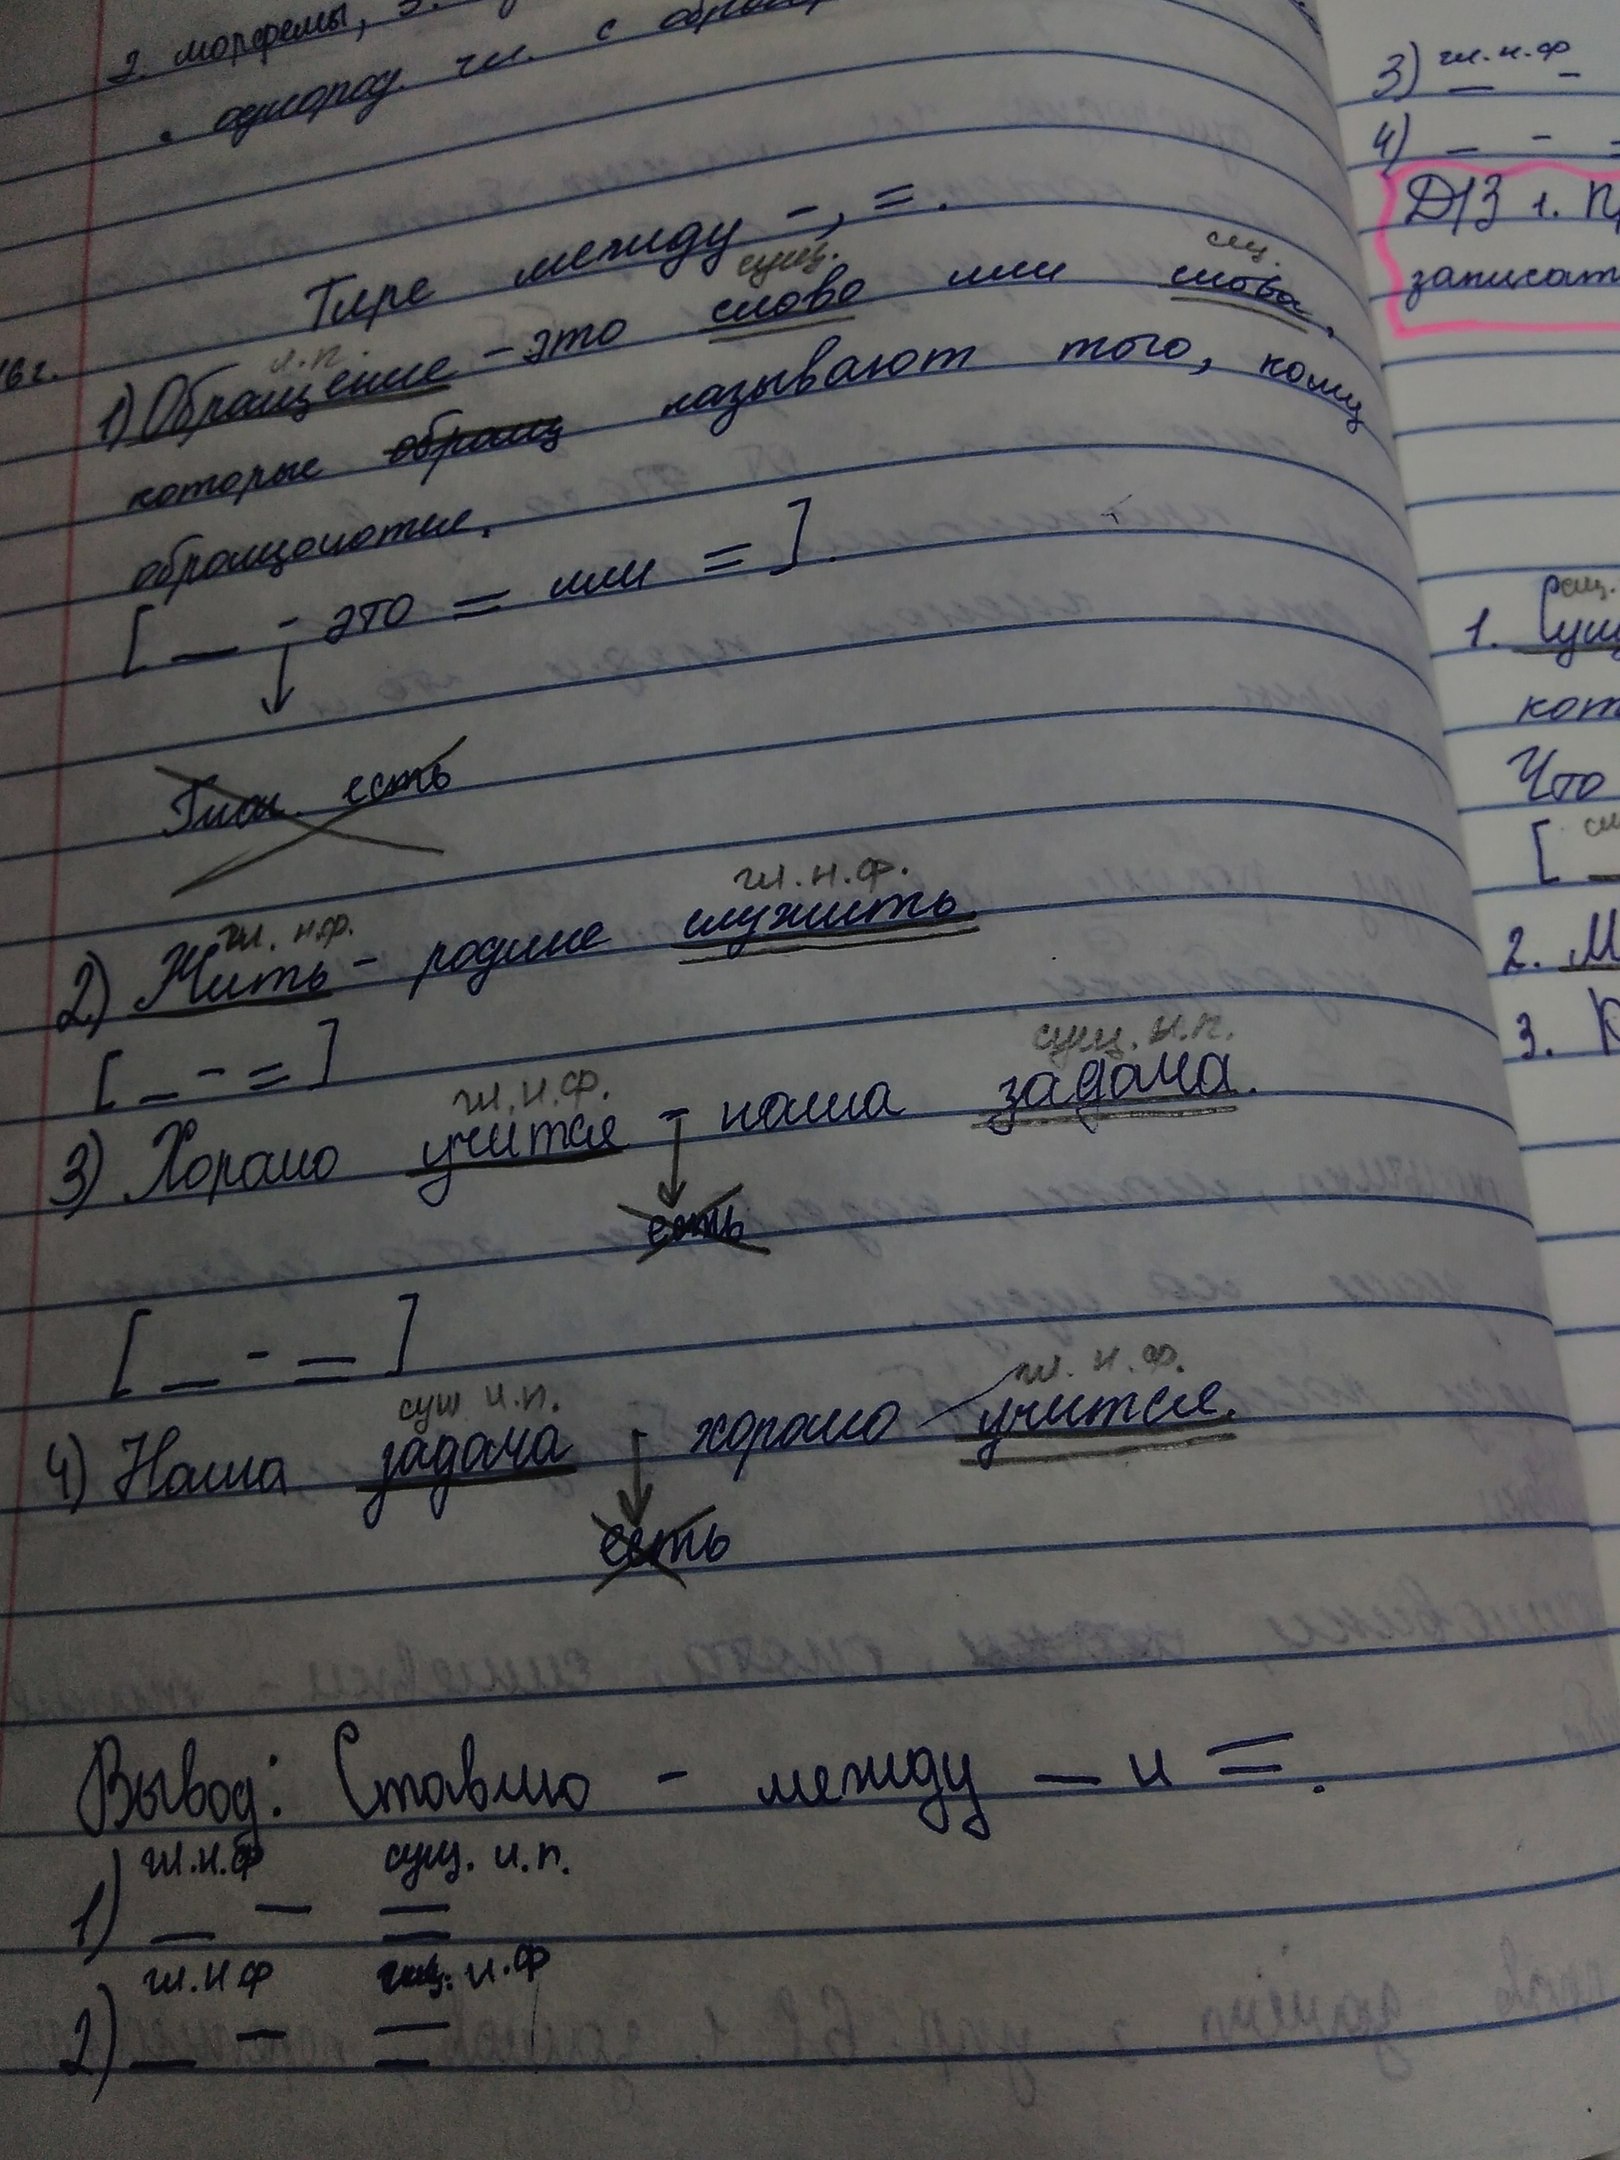 2. морфемы, 3.
. однород. чл. с
Тире между -, =.
сущ. сущ.
1) Обращение - это слово или слова,
и.п.
которые обращ называют того, кому
обращаются.
[ _ - это = или = ].
есть
гл. н.ф.
гл. н.ф.
2) Жить - родине служить
[ _ - = ]
гл. н.ф. сущ. и.п.
3) Хорошо учится - наша задача.
есть
[ _ - = ]
сущ и.п. гл. н.ф.
4) Наша задача - хорошо учится.
есть
Вывод: Ставлю - между _ и =.
гл.н.ф сущ. и.п.
1) _ - =
гл.н ф н.ф
2) _ - =
3) гл.н.ф
_ -
4) _ - =
Д/З 1.
записат
сущ.
1. Сущ
кот
Что
[ _
2. М
3. К